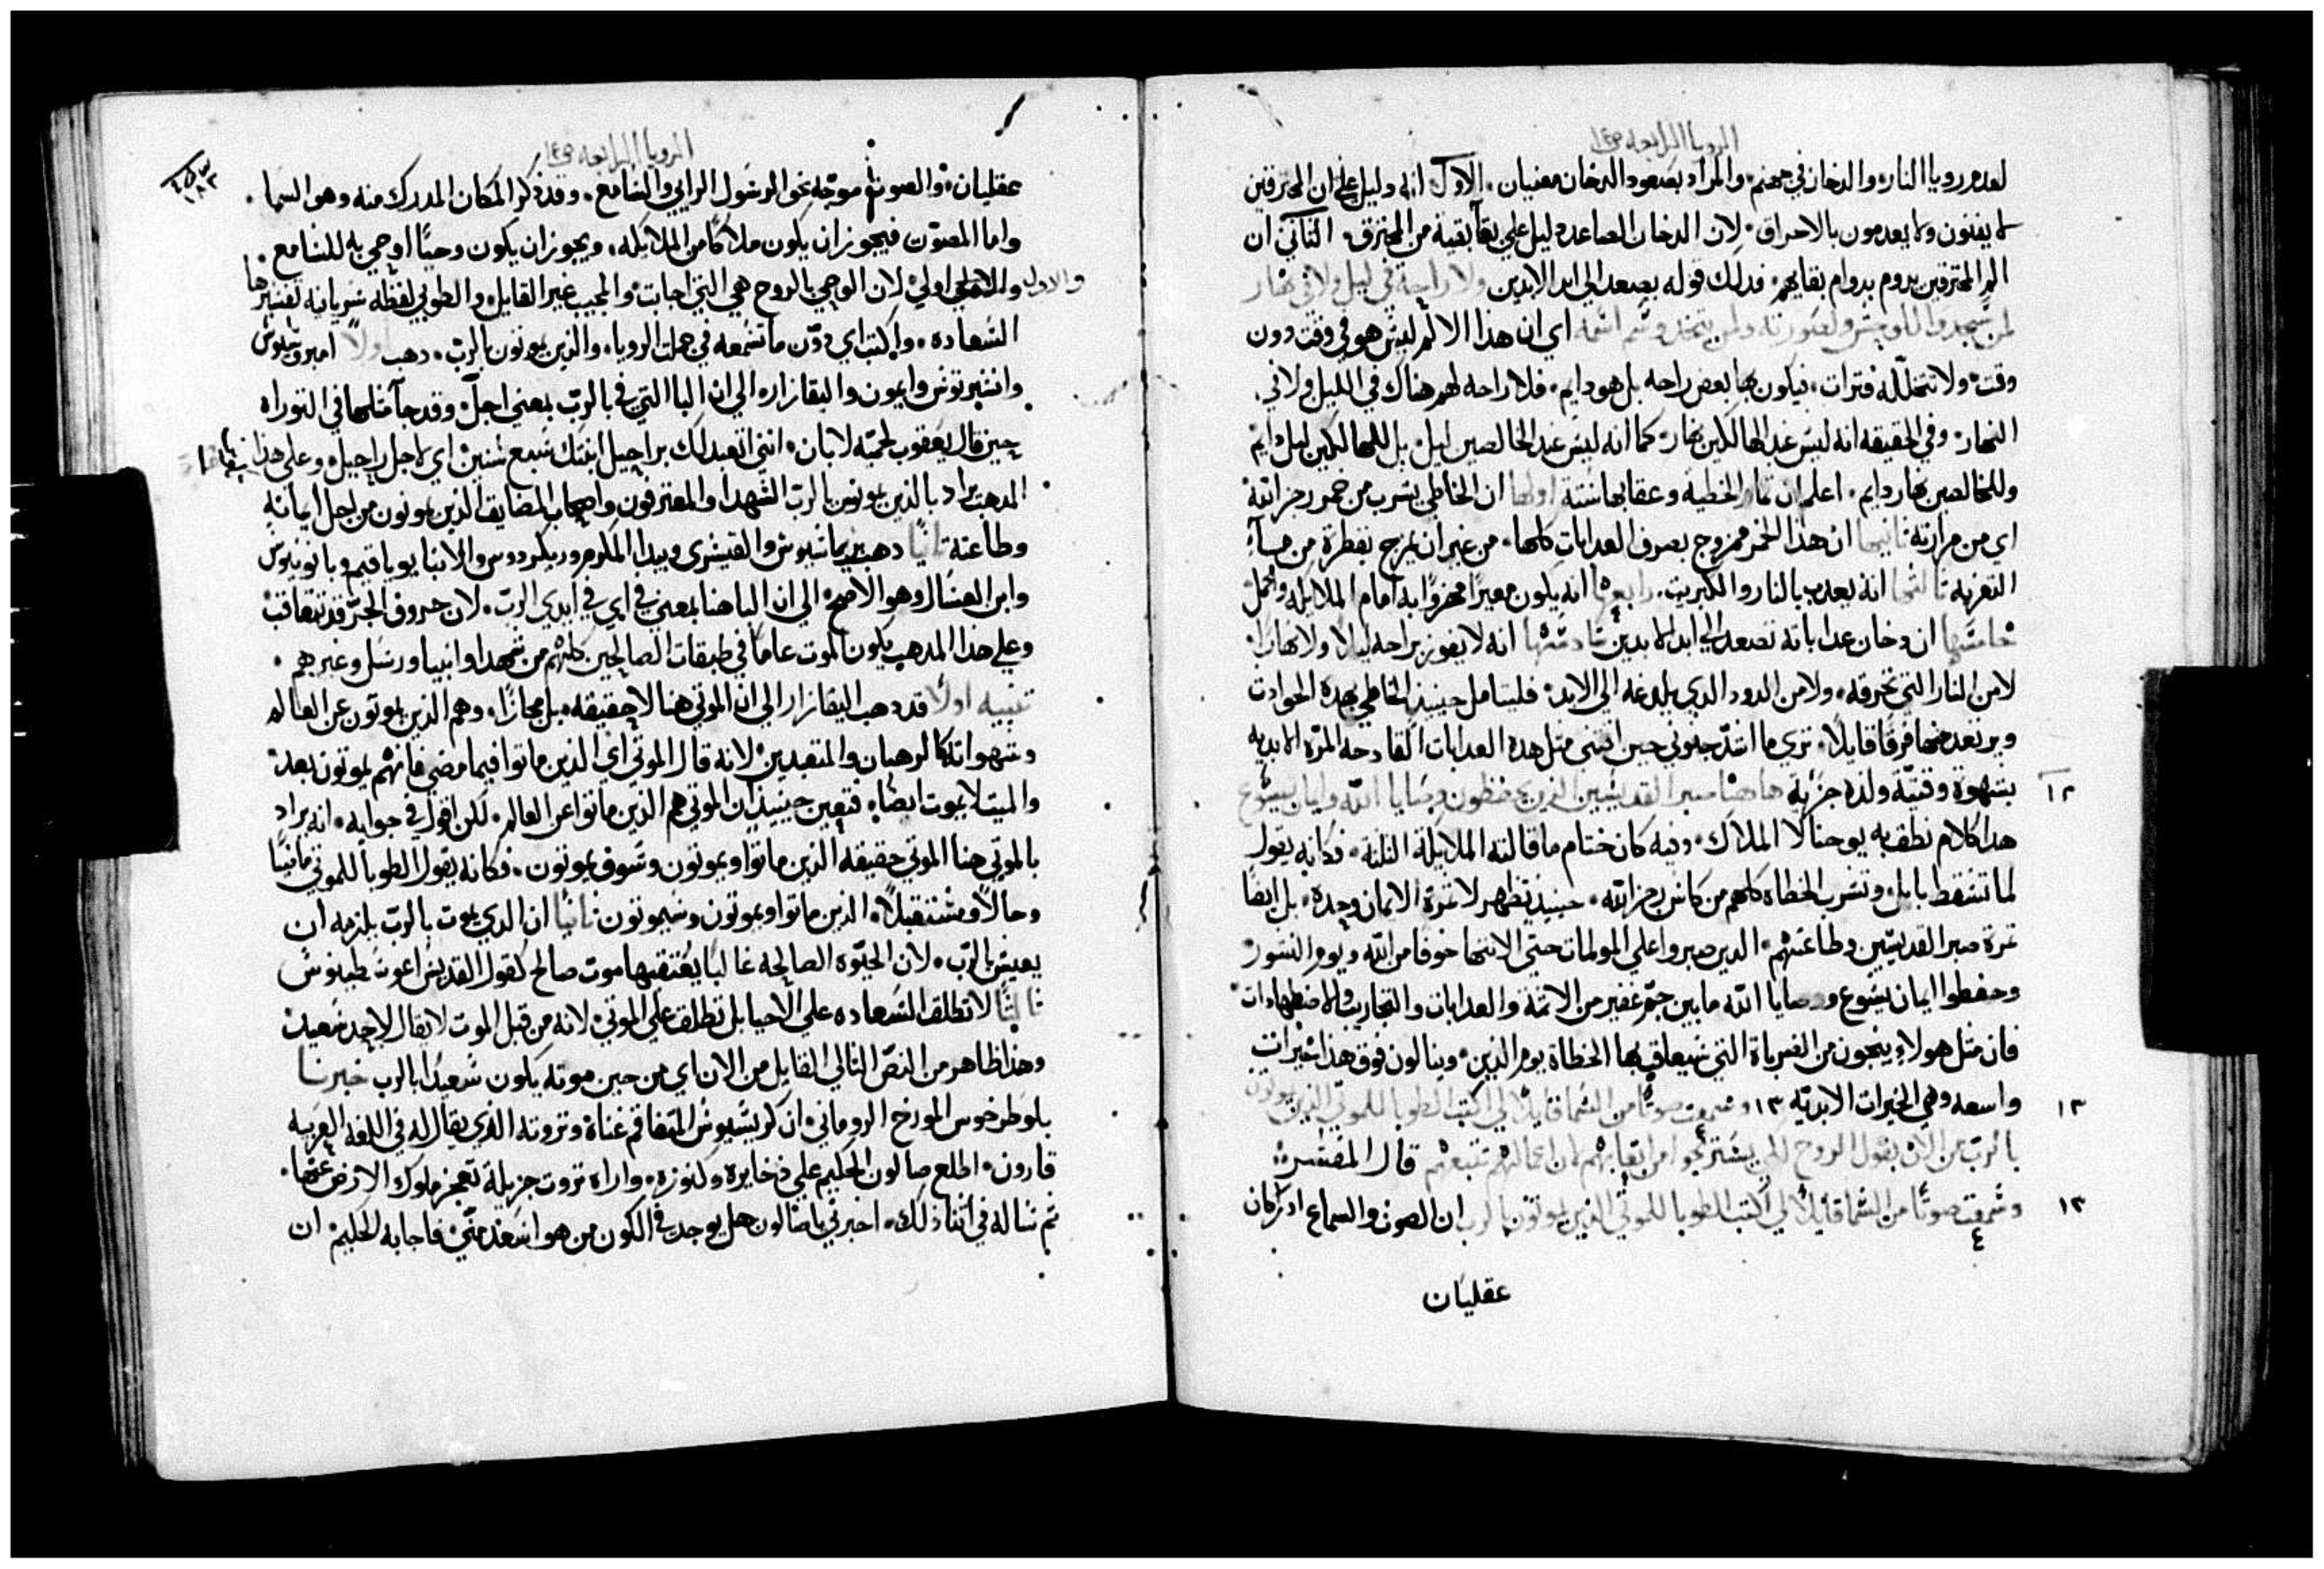 الرويا الرابعه ص١٤
لعدم رويا النار والدخان في جهنم والمراد بصعود الدخان معنيان الاول انه دليل علي ان المحترقين
لا يفنون ولا يعدمون بالاحراق لان الدخان الصاعد دليل علي بقا بقية من المحترق الثاني ان
الم المحترقين يدوم بدوام بقايهم فدلك قوله يصعد الي ابد الابدين ولا راحة في ليل ولا في نهار
اي ان هذا الالم ليس هو في وقت دون
وقت ولا تتخلله فترات فيكون بها بعض راحه بل هو دايم فلا راحه لهم هناك في الليل ولا في
النهار وفي الحقيقه انه ليس عند الهالكين نهار كما انه ليس عند الخالصين ليل بل للهالكين ليل دايم
وللخالصين نهار دايم اعلم ان الخطية وعقابها ستة اولها ان الخاطي يشرب من خمر رجز الله
اي من مرارته ثانيها ان هذا الخمر ممزوج بصرف العدابات كلها من غير ان يمزج بقطرة من مآء
التعزيه ثالثها انه يعدب بالنار والكبريت رابعها انه يكون معيرا محزوا به امام الملايكه والحمل
خامسها ان دخان عداباته تصعد الي ابد الابدين سادسها انه لا يفوز براحه ليلا ولا نهارا
لا من النار التي تحرقه ولا من الدود الدي يلدغه الي الابد فليتامل حينيد الخاطي بهده الحوادث
ويرتعد منها فرقا قايلا تري ما اشد جنوني حين اقتني مثل هده العدابات القادحه المرة الابديه
١٢ بشهوة وقتية ولدة جزية هاهنا صبر القديسين الذين يحفظون وصايا الله وايمان يسوع
هدا كلام نطق به يوحنا لا الملاك وفيه كان ختام ما قالته الملايكة الثلثة فكانه يقول
لما تسقط بابل وتشرب الخطاه كلهم من كاس رجز الله حينيد تظهر لا ثمرة الايمان وحده بل ايضا
ثمرة صبر القديسين وطاعتهم الدين صبروا علي المولمات حتي الانتها خوفا من الله ويوم النشور
وحفظوا ايمان يسوع ووصايا الله ما بين جم غفير من الاتمة والعدابات والتجارب والاضطهادات
فان مثل هولاء ينجون من الضرباة التي سيعاقب بها الخطاة يوم الدين وينالون فوق هذا خيرات
١٣ واسعه وهي الخيرات الابديه ١٣ وسمعت صوتا من السما قايلا لي اكتب الطوبا للموتي الذين يموتون
بالرب من الان يقول الروح لكي يستريحوا من اتعابهم لان اعمالهم تتبعهم قال المفسر
١٣ وسمعت صوتا من السما قايلا لي اكتب الطوبا للموتي الذين يموتون بالرب ان الصوت والسماع ادراكان
عقليان
الرويا الرابعه ص١٤
١٨٣
عقليان والصوت موجه نحو الرسول الرايي والسامع وقد ذكر المكان المدرك منه وهو السما
واما المصوت فيجوز ان يكون ملاكا من الملايكه ويجوز ان يكون وحيا اوحي به للسامع
والاول اولي لان الوحي بالروح هي التي اجابت والمجيب غير القايل والطوبي لفظه سريانه تفسيرها
السعاده واكتب اي دون ما تسمعه في جملت الرويا والذين يموتون بالرب دهب اولا امبروسيوس
وانتيرتوس وايمون والبقازاره الي ان البا التي في بالرب بمعني اجل وقد جآ مثلها في التوراه
حين قال يعقوب لحميه لابان انني اتعبد لك براحيل ابنتك سبع سنين اي لاجل راحيل وعلي هذا
المدهب يراد بالذين يموتون بالرب الشهدا والمعترفون واصحاب المضايق الذين يموتون من اجل ايمانه
وطاعته ثانيا دهب بريماسيوس والقيسري وبيدا المكرم وريكردوس والانبا يوياقيم وبانونيوس
وابن العسال وهو الاصح الي ان البا هنا بمعني في اي في ايدي الرب لان حروف الجر قد تتعاقب
وعلي هذا المدهب يكون الموت عاما في طبقات الصالحين كلهم من شهدا وانبيا ورسل وغيرهم
تنبيه اولا قد دهب البقازار الي ان الموتي هنا لا حقيقه بل مجازا وهم الذين يموتون عن العالم
وشهواته كالرهبان والمتعبدين لانه قال الموتي اي الذين ماتوا فيما مضي فانهم يموتون بعد
والميت لا يموت ايضا فتعين حينيد ان الموتي هم الذين ماتوا عن العالم لكن اقول في جوابه انه يراد
بالموتي هنا الموتي حقيقه الذين ماتوا ويموتون وسوف يموتون فكانه يقول الطوبا للموتي ماضيا
وحالا ومستقبلا الذين ماتوا ويموتون وسيموتون ثانيا ان الدي يموت بالرب يلزمه ان
يعيش بالرب لان الحيوه الصالحه غالبا يعتقبها موت صالح كقول القديس اغوسطينوس
ثالثا لا تطلق السعاده علي الاحيا بل تطلق علي الموتي لانه من قبل الموت لا يقال لاحد سعيد
وهذا ظاهر من النص التالي القايل من الان اي من حين موته يكون سعيدا بالرب خبرنا
بلوطرخوس المورخ الروماني ان كريسيوس المتفاقم غناه وثروته الذي يقال له في اللغه العربيه
قارون اطلع صالون الحكيم علي ذخايره وكنوزه واراه ثروت جزيلة تعجز ملوك الارض عنها
ثم ساله في اثنا ذلك اخبرني يا صالون هل يوجد في الكون من هو اسعد مني فاجابه الحكيم ان